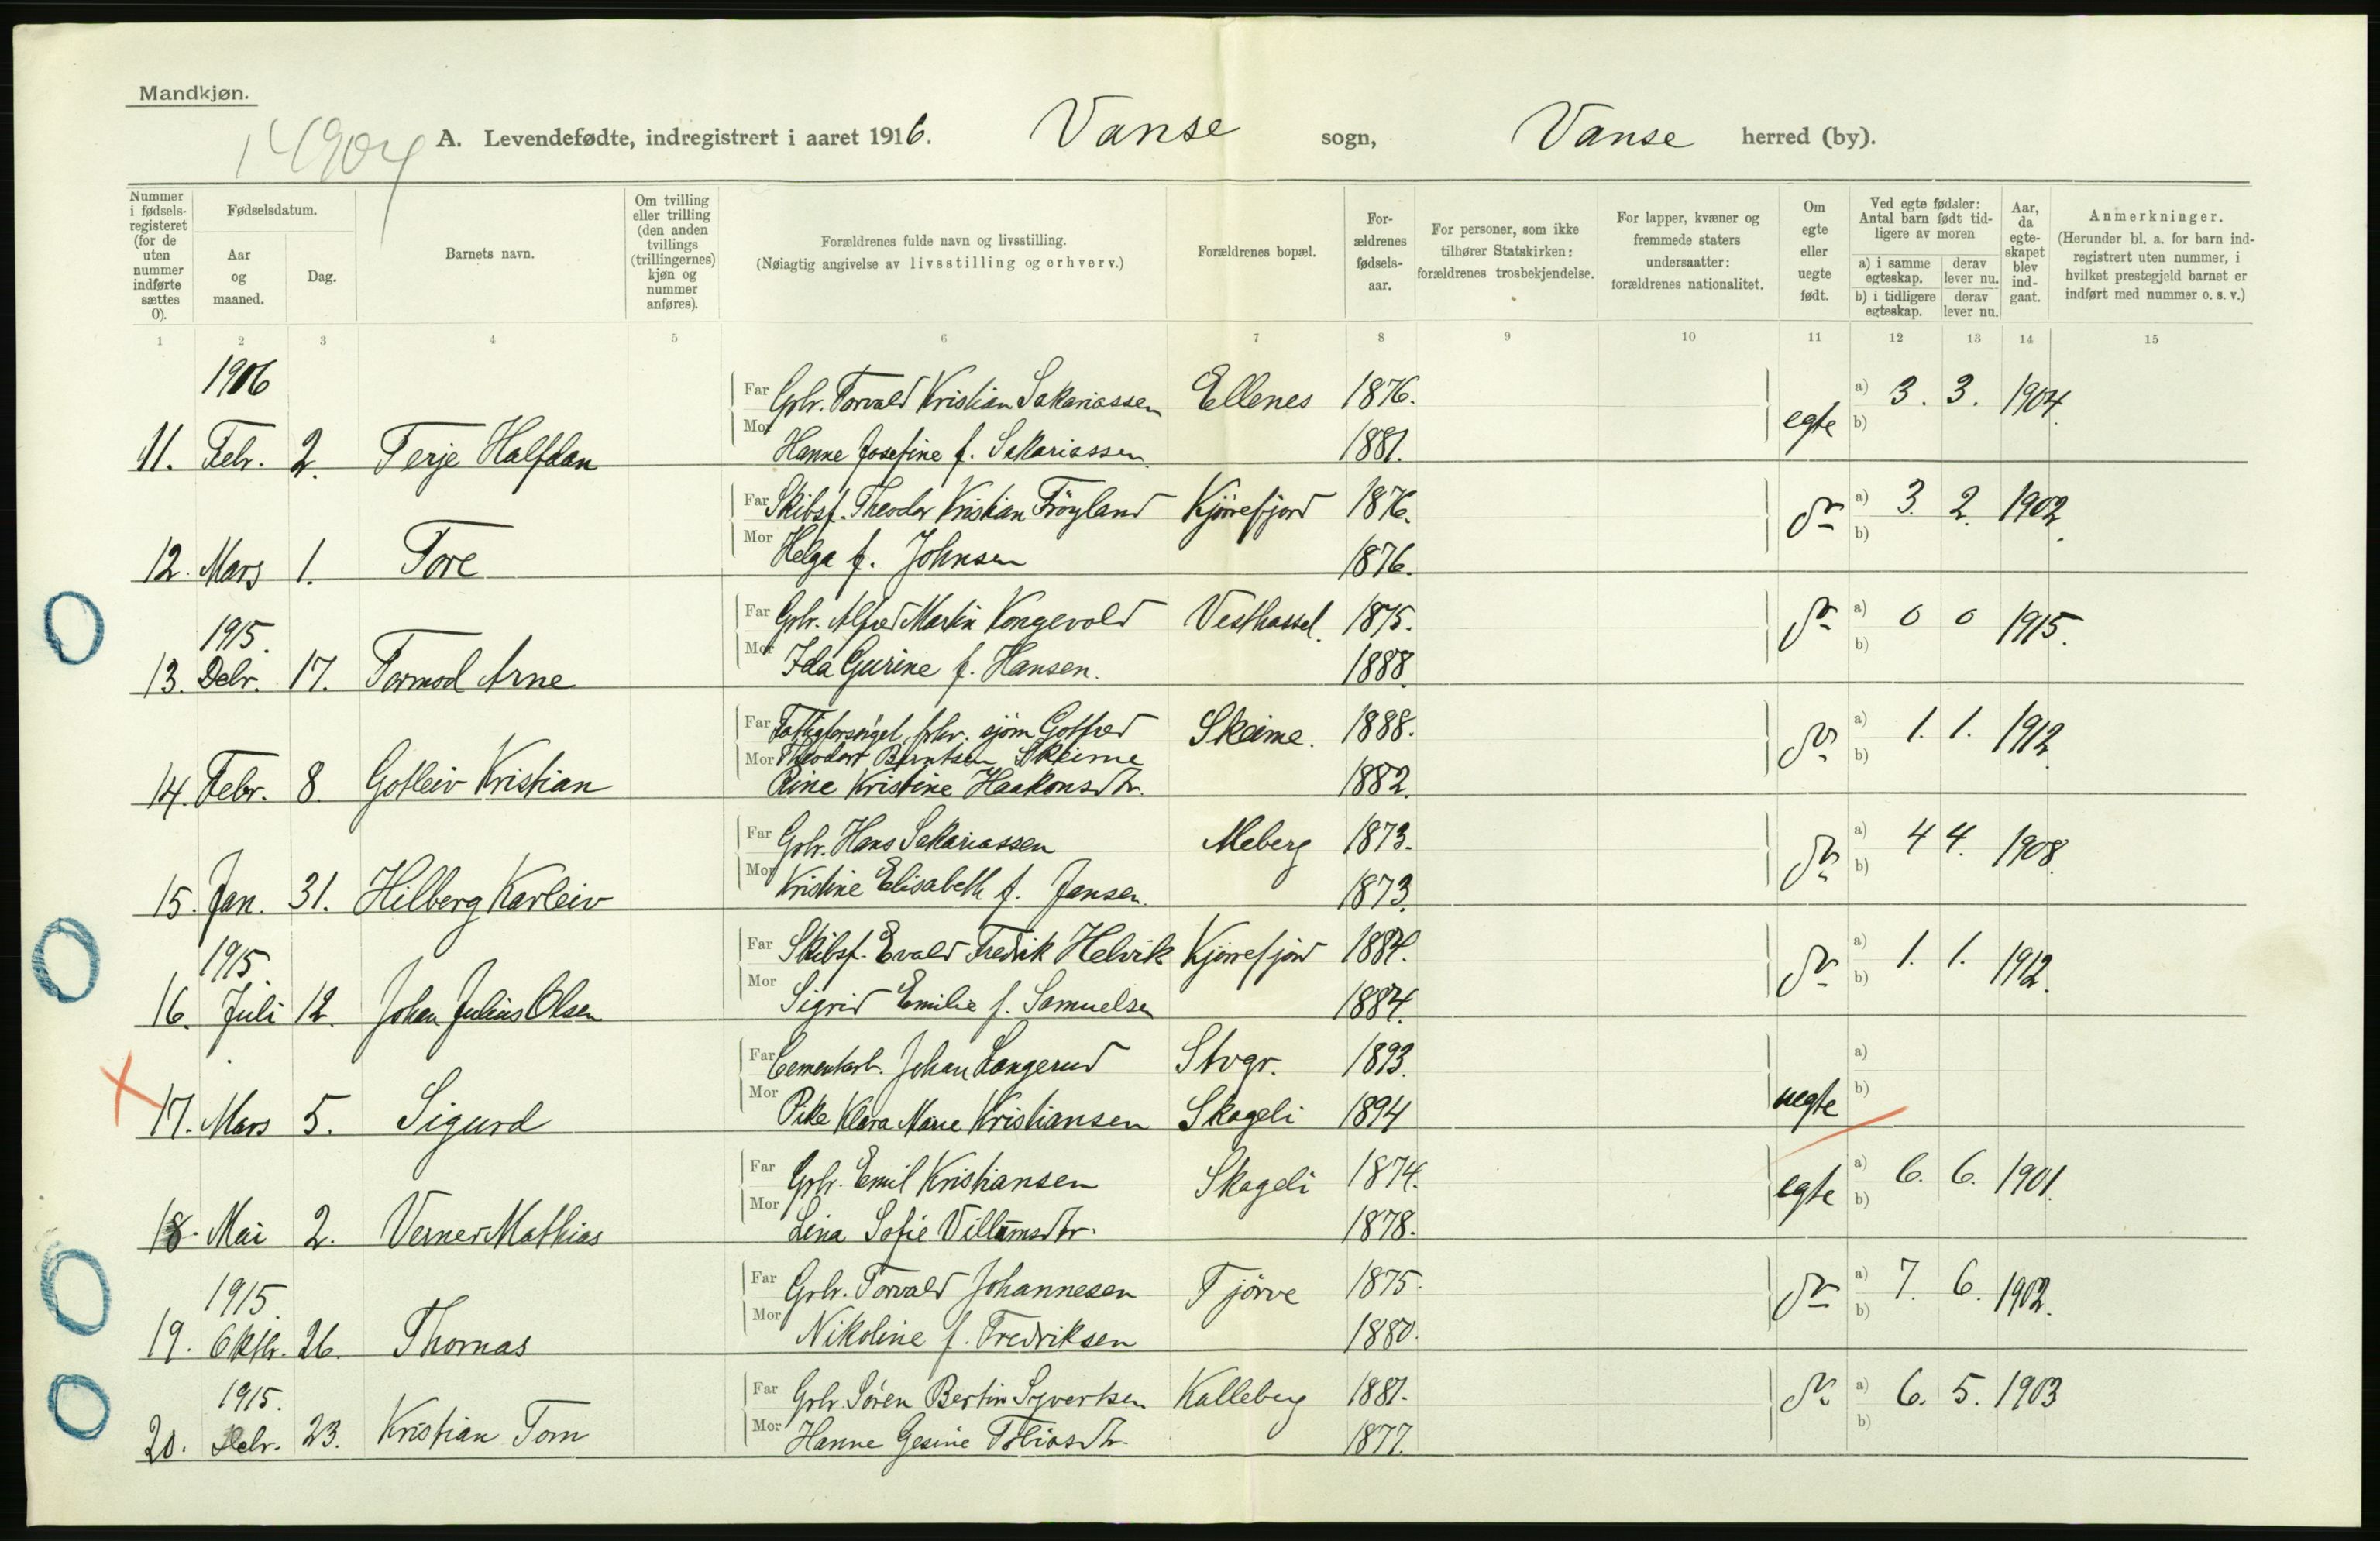 Mandkjøn.
14904
A. Levendefødte, indregistrert i aaret 1916. Vanse sogn, Vanse herred (by).
Nummer i fødsels-registeret (for de uten nummer indførte sættes 0).
Fødselsdatum.
Aar og maaned.
Dag.
Barnets navn.
Om tvilling eller trilling (den anden tvillings (trillingernes) kjøn og nummer anføres).
Forældrenes fulde navn og livsstilling.
(Nøiagtig angivelse av livsstilling og erhverv.)
Forældrenes bopæl.
For-ældrenes fødsels-aar.
For personer, som ikke tilhører Statskirken: forældrenes trosbekjendelse.
For lapper, kvæner og fremmede staters undersaatter: forældrenes nationalitet.
Om egte eller uegte født.
Ved egte fødsler: Antal barn født tid-ligere av moren
a) i samme egteskap. derav lever nu.
b) i tidligere egteskap. derav lever nu.
Aar, da egte-skapet blev ind-gaat.
Anmerkninger.
(Herunder bl. a. for barn ind-registrert uten nummer, i hvilket prestegjeld barnet er indført med nummer o. s. v.)
1 2 3 4 5 6 7 8 9 10 11 12 13 14 15
1906
Far Grbr. Torvald Kristian Sakariassen Ellenes 1876. egte a) 3. 3. 1904.
11. Febr. 2. Terje Halfdan Mor Hanne Josefine f. Sakariassen 1881. b)
Far Skibsf. Theodor Kristian Frøyland Kjørrefjord 1876. do a) 3. 2. 1902.
12. Mars 1. Tore Mor Helga f. Johnsen 1876. b)
1915.
Far Grbr. Alfred Martin Kongevold Vesthassel. 1875. do a) 0 0 1915.
13. Debr. 17. Tormod Arne Mor Ida Gurine f. Hansen. 1888. b)
Far Fattigforsørget, frhv. sjøm Gotfred Skeime. 1888. do a) 1. 1. 1912.
Mor Theodor Berntsen Skeime b)
14. Febr. 8. Gotleiv Kristian Rine Kristine Haakonsdtr. 1882.
Far Grbr. Hans Sakariassen Meberg 1873. do a) 4 4. 1908.
15. Jan. 31. Hilberg Karleiv Mor Kristine Elisabeth f. Jansen. 1873. b)
1915.
Far Skibsf. Evald Fredrik Helvik Kjørrefjord 1884. do a) 1. 1. 1912.
16. Juli 12. Johan Julius Olsen Mor Sigrid Emilie f. Samuelsen 1884. b)
Far Cementarb. Johan Langerud Stvgr. 1893. a)
17. Mars 5. Sigurd Mor Pike Klara Marie Kristiansen Skageli 1894 uegte b)
Far Grbr. Emil Kristiansen Skageli 1874. egte a) 6. 6. 1901.
18. Mai 2. Verner Mathias Mor Lina Sofie Villumsdtr. 1878. b)
1915.
Far Grbr. Torvald Johannesen Tjørve 1875. do a) 7. 6. 1902.
19. Oktbr. 26. Thomas Mor Nikoline f. Fredriksen 1880. b)
1915.
Far Grbr. Søren Bertin Syvertsen Kalleberg 1881. do a) 6. 5. 1903
20. Debr. 23. Kristian Tom Mor Hanne Gesine Tobiasdtr. 1877. b)